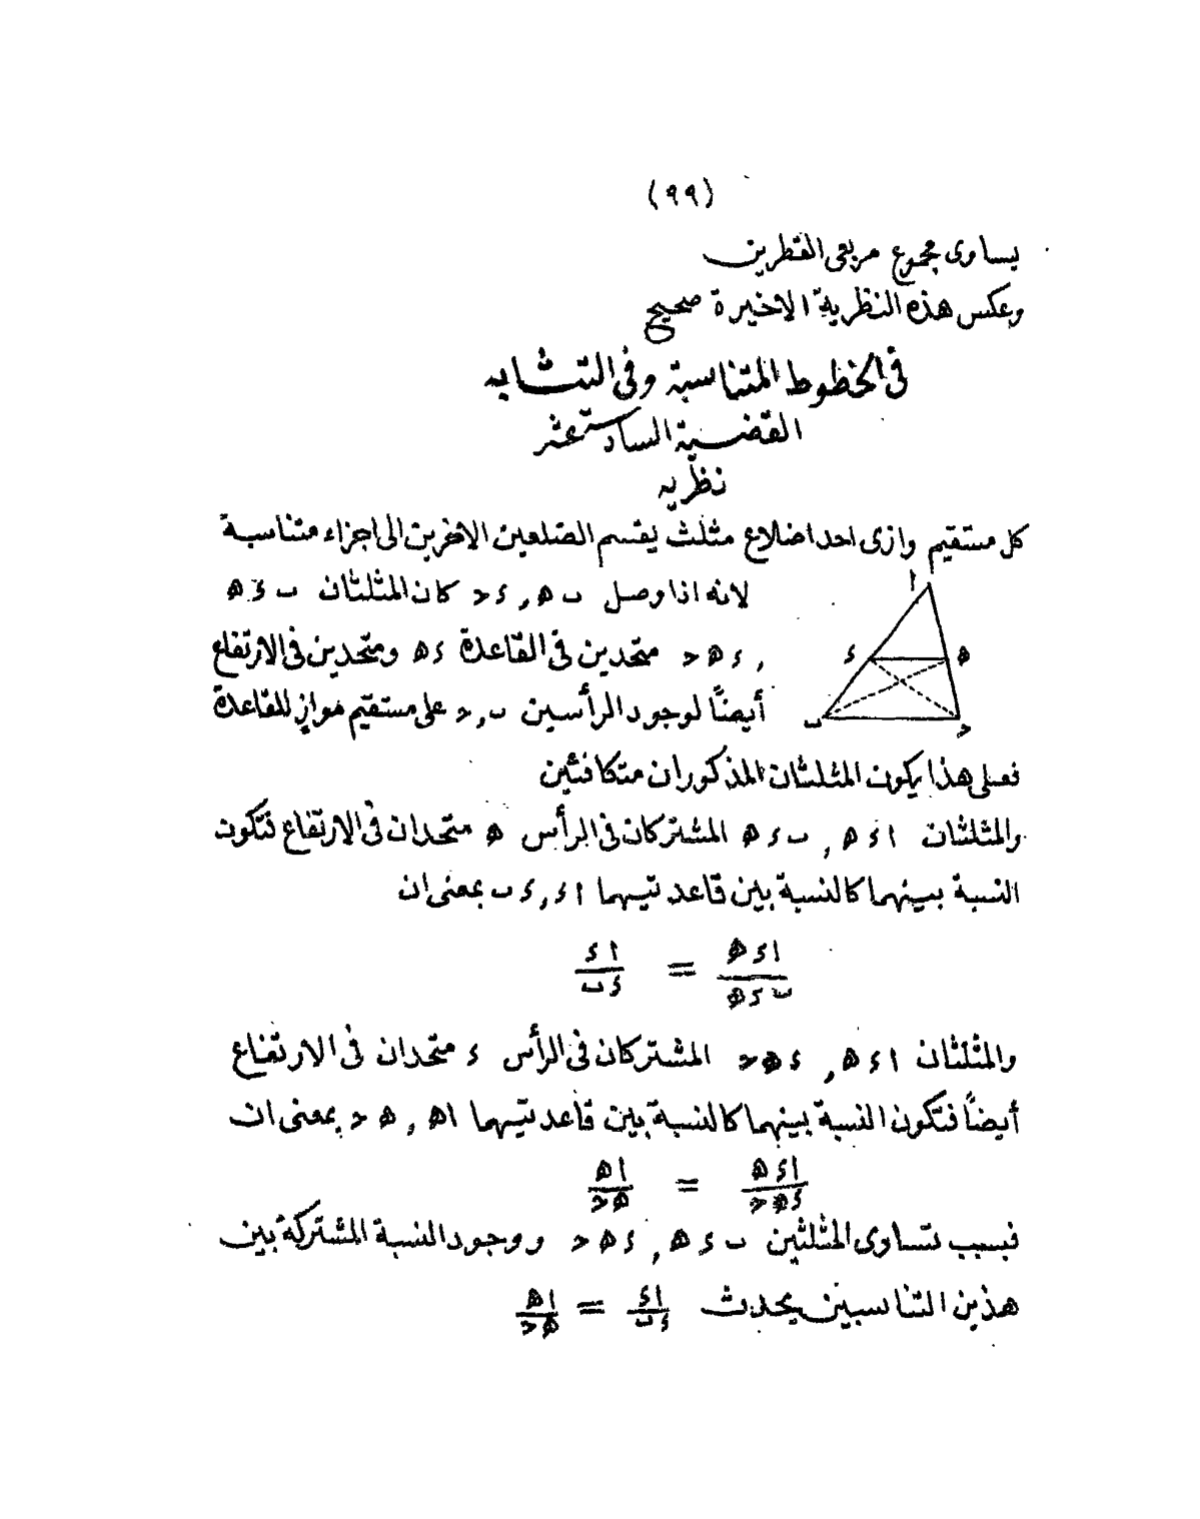 (٩٩)
يساوى مجموع مربعى القطرين
وعكس هذه النظرية الاخيرة صحيح
فى الخطوط المتناسبة وفى التشابه
القضية السادسة عشر
نظريه
كل مستقيم وازى احد اضلاع مثلث يقسم الضلعين الاخرين الى اجزاء متناسبة
لانه اذا وصل ب ه , ء ح كان المثلثان ب ء ه
, ء ه ح متحدين فى القاعدة ء ه ومتحدين فى الارتفاع
أيضًا لوجود الرأسين ب , ح على مستقيم مواز للقاعدة
ا
ء ه
ب ح
فعلى هذا يكون المثلثان المذكوران متكافئين
والمثلثان ا ء ه , ب ء ه المشتركان فى الرأس ه متحدان فى الارتفاع فتكون
النسبة بينهما كالنسبة بين قاعدتيهما ا ء , ء ب بمعنى ان
ا ء ه / ب ء ه = ا ء / ء ب
والمثلثان ا ء ه , ء ه ح المشتركان فى الرأس ء متحدان فى الارتفاع
أيضًا فتكون النسبة بينهما كالنسبة بين قاعدتيهما ا ه , ه ح بمعنى ان
ا ء ه / ء ه ح = ا ه / ه ح
فبسبب تساوى المثلثين ب ء ه , ء ه ح ووجود النسبة المشتركة بين
هذين التناسبين يحدث ا ء / ء ب = ا ه / ه ح